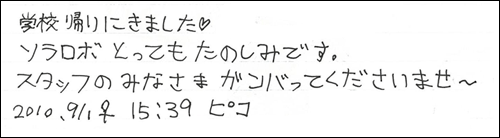 学校帰りにきました♡
ソラロボ とっても たのしみです。
スタッフの みなさま がンバってくださいませ〜
2010.9/1.♀ 15:39 ピコ